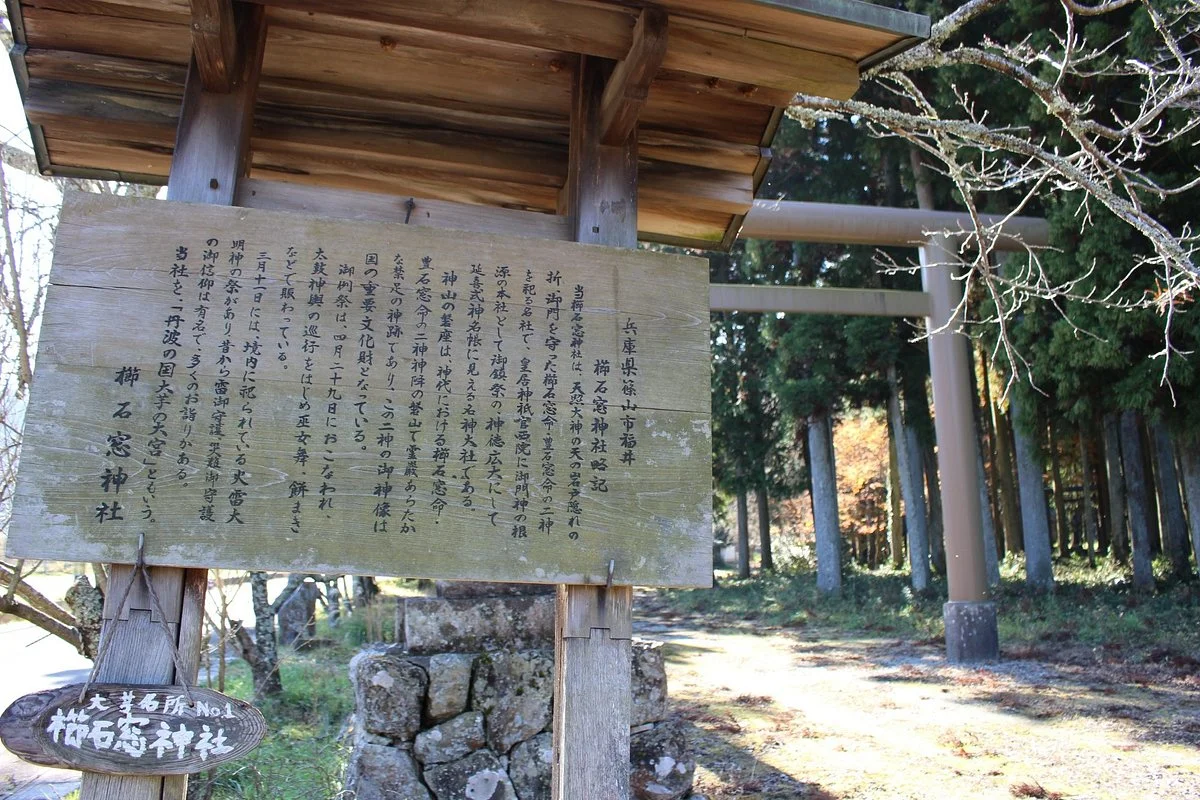 兵庫県篠山市福井
櫛石窓神社略記
当櫛石窓神社は、天照大神の天の岩戸隠れの
折、御門を守った櫛石窓命・豊石窓命の二神
を祀る名社で、皇居神祇官西院に御門神の根
源の本社として御鎮祭の神徳広大にして
延喜式神名帳に見える名神大社である。
神山の磐座は、神代における櫛石窓命・
豊石窓命の二神神陣の磐山で霊巌あらたか
な禁足の神跡であり、この二神の御神像は
国の重要文化財となっている。
御例祭は、四月二十九日におこなわれ、
太鼓神輿の巡行をはじめ巫女舞・餅まき
などで賑わっている。
三月十一日には、境内に祀られている火雷大
明神の祭があり昔から雷御守護、災難御守護
の御信仰は有名で、多くのお詣りがある。
当社を、「丹波の国大芋の大宮」ともいう。
櫛石窓神社
大芋名所 No.1
櫛石窓神社